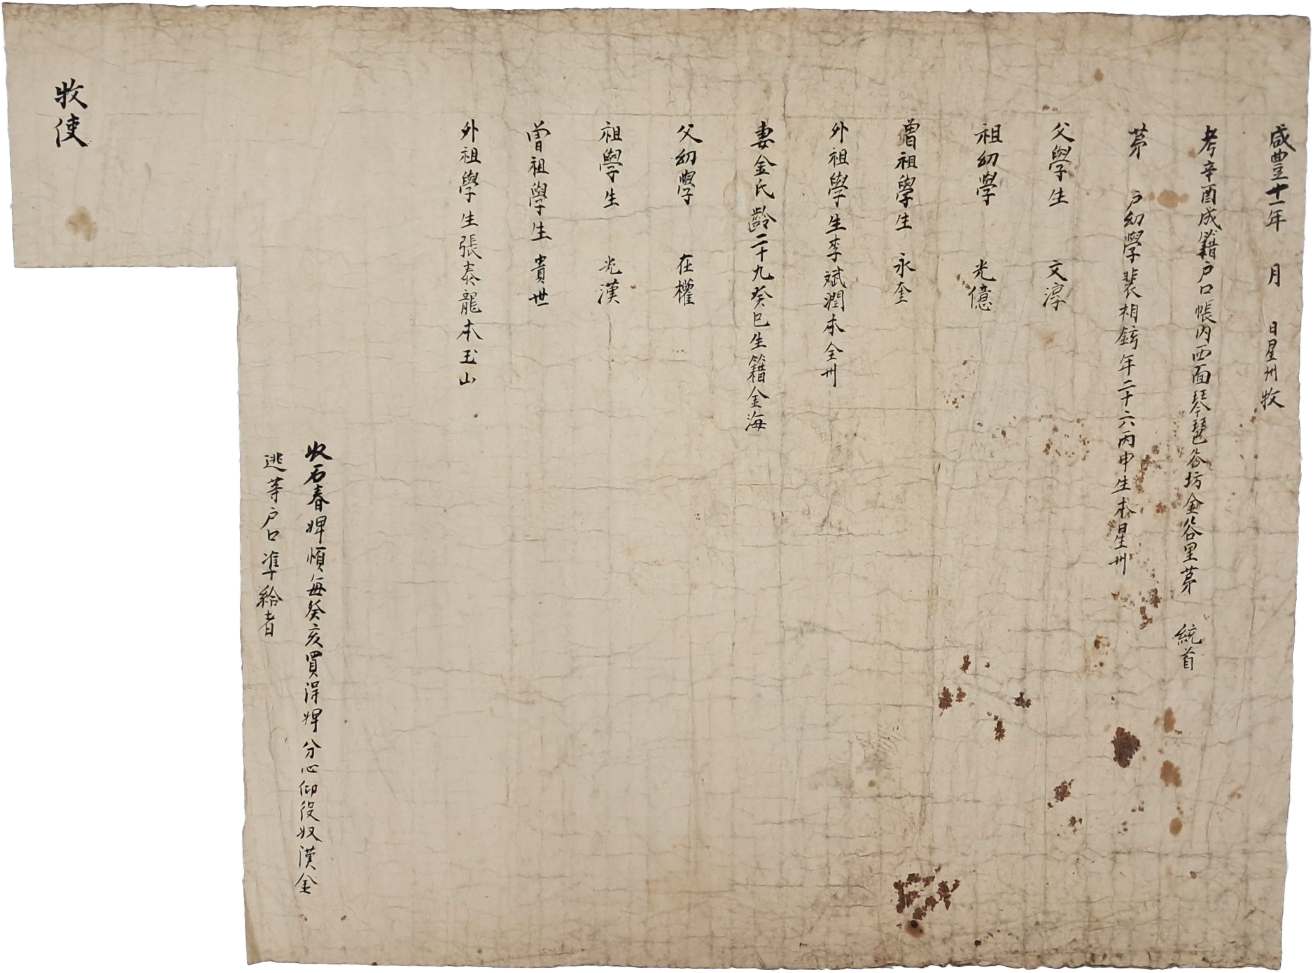 咸豐十一年 月 日星州牧
考辛酉成籍戶口帳內西面琴琶谷坊金谷里苐 統首
苐 戶幼學裴相鉉年二十六丙申生本星州
父學生 文淳
祖幼學 光億
曾祖學生 永奎
外祖學生李斌潤本全州
妻金氏齡二十九癸巳生籍金海
父幼學 在權
祖學生 光漢
曾祖學生 貴世
外祖學生張泰龍本玉山
奴石春婢順每癸亥買得婢分心仰役奴漢金
逃等戶口準給者
牧使